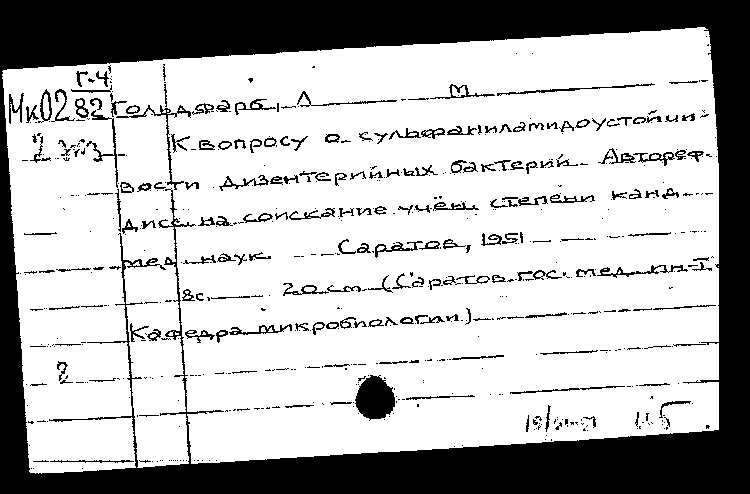 Г-4
Мк02 82 Гольдфарб, Л М.
2 экз К вопросу о сульфаниламидоустойчи-
вости дизентерийных бактерий. Автореф.
дисс. на соискание учён. степени канд.
мед. наук. Саратов, 1951
8с. 20 см (Саратов. гос. мед. ин-т.
Кафедра микробиологии)
2